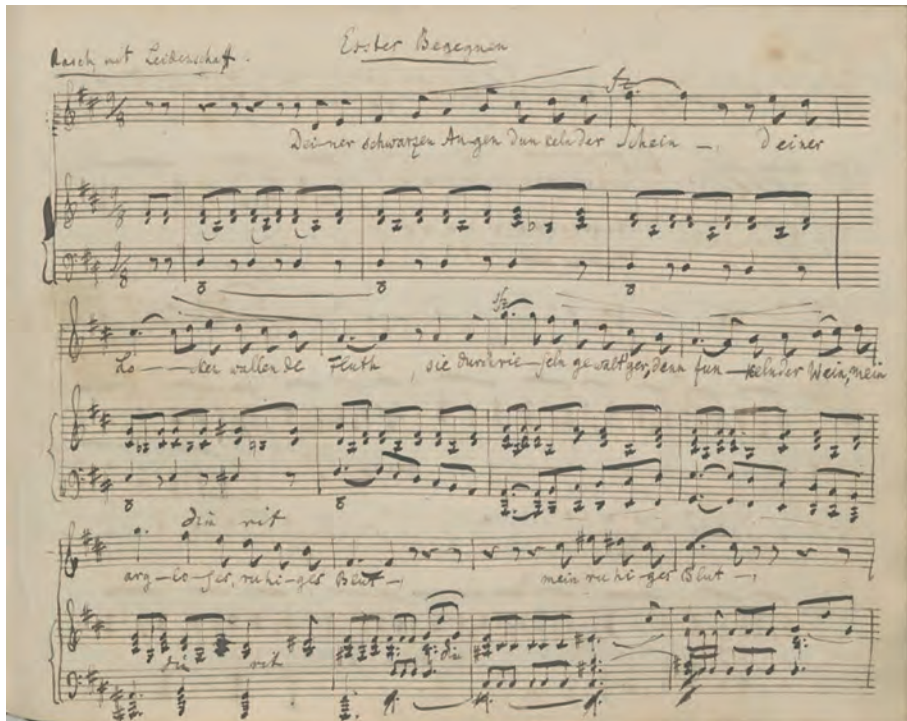 Erster Begegnen
Rasch, mit Leidenschaft.
fz
Dei-ner schwarzen Au-gen dun kelnder Schein –, deiner
9/8
9/8
9/8
8 8 8
fz
Lo — cken wallende Fluth, sie durchrie-seln gewalt'ger, denn fun-kelnder Wein, mein
8 8
dim rit
arg-lo-ses, ruhi-ges Blut –, mein ruhi-ges Blut –,
dim rit dim